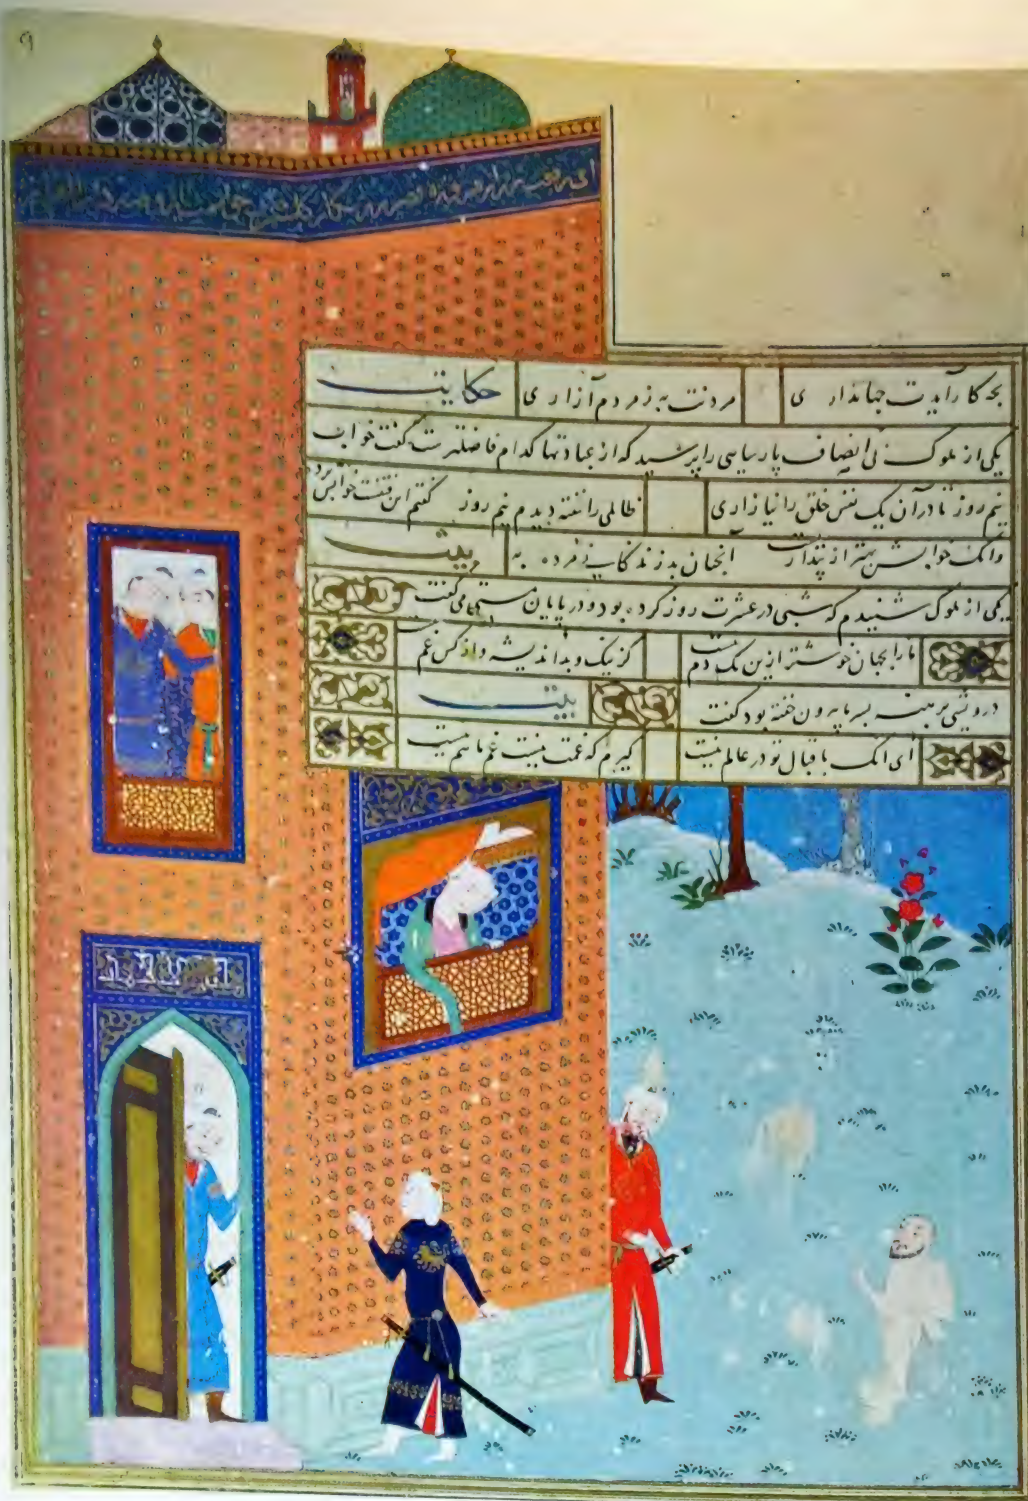 بچه کار آیدت جهانداری مردنت به ز مردم آزاری حکایت
یکی از ملوک بی انصاف پارسایی را پرسید که از عبادتها کدام فاضلترست گفت خواب
نیم روز تا در آن یک نفس خلق را نیازاری ظالمی را خفته دیدم نیم روز گفتم این فتنه‌ست خوابش برده به
وانک خوابش بهتر از بیداریست آنچنان بد زندگانی مرده به بیت
یکی از ملوک شنیدم که شبی در عشرت روز کرده بود و در پایان مستی می‌گفت
ما را بجهان خوشتر ازین یک دم نیست کز نیک و بد اندیشه و از کس غم نیست
درویشی برهنه بسرما برون خفته بود گفت بیت
ای انک باقبال تو در عالم نیست گیرم که غمت نیست غم ما هم نیست